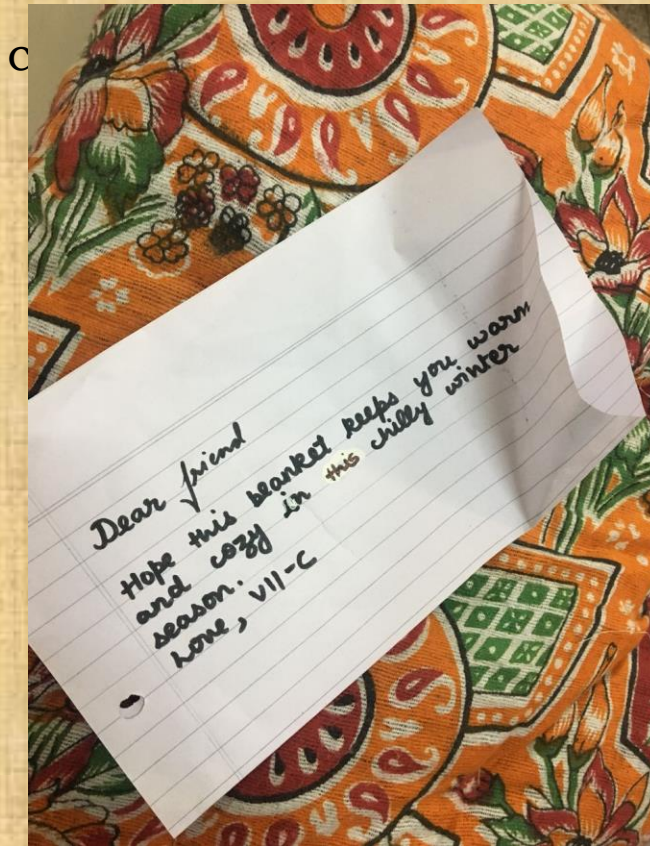 Dear friend
Hope this blanket keeps you warm
and cozy in this chilly winter
season.
Love, VII-C